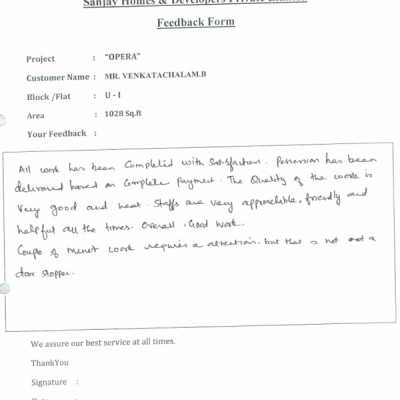 Sanjay Homes & Developers Private Limited
Feedback Form
Project : "OPERA"
Customer Name : MR. VENKATACHALAM.B
Block /Flat : U - I
Area : 1028 Sq.ft
Your Feedback :
All work has been Completed with Satisfaction. Possession has been
delivered based on Complete Payment. The Quality of the work is
very good and neat. Staffs are very approchible, friendly and
helpful all the times. Overall, Good work.
Couple of work requires a attention, but that is not a
door stopper.
We assure our best service at all times.
ThankYou
Signature :